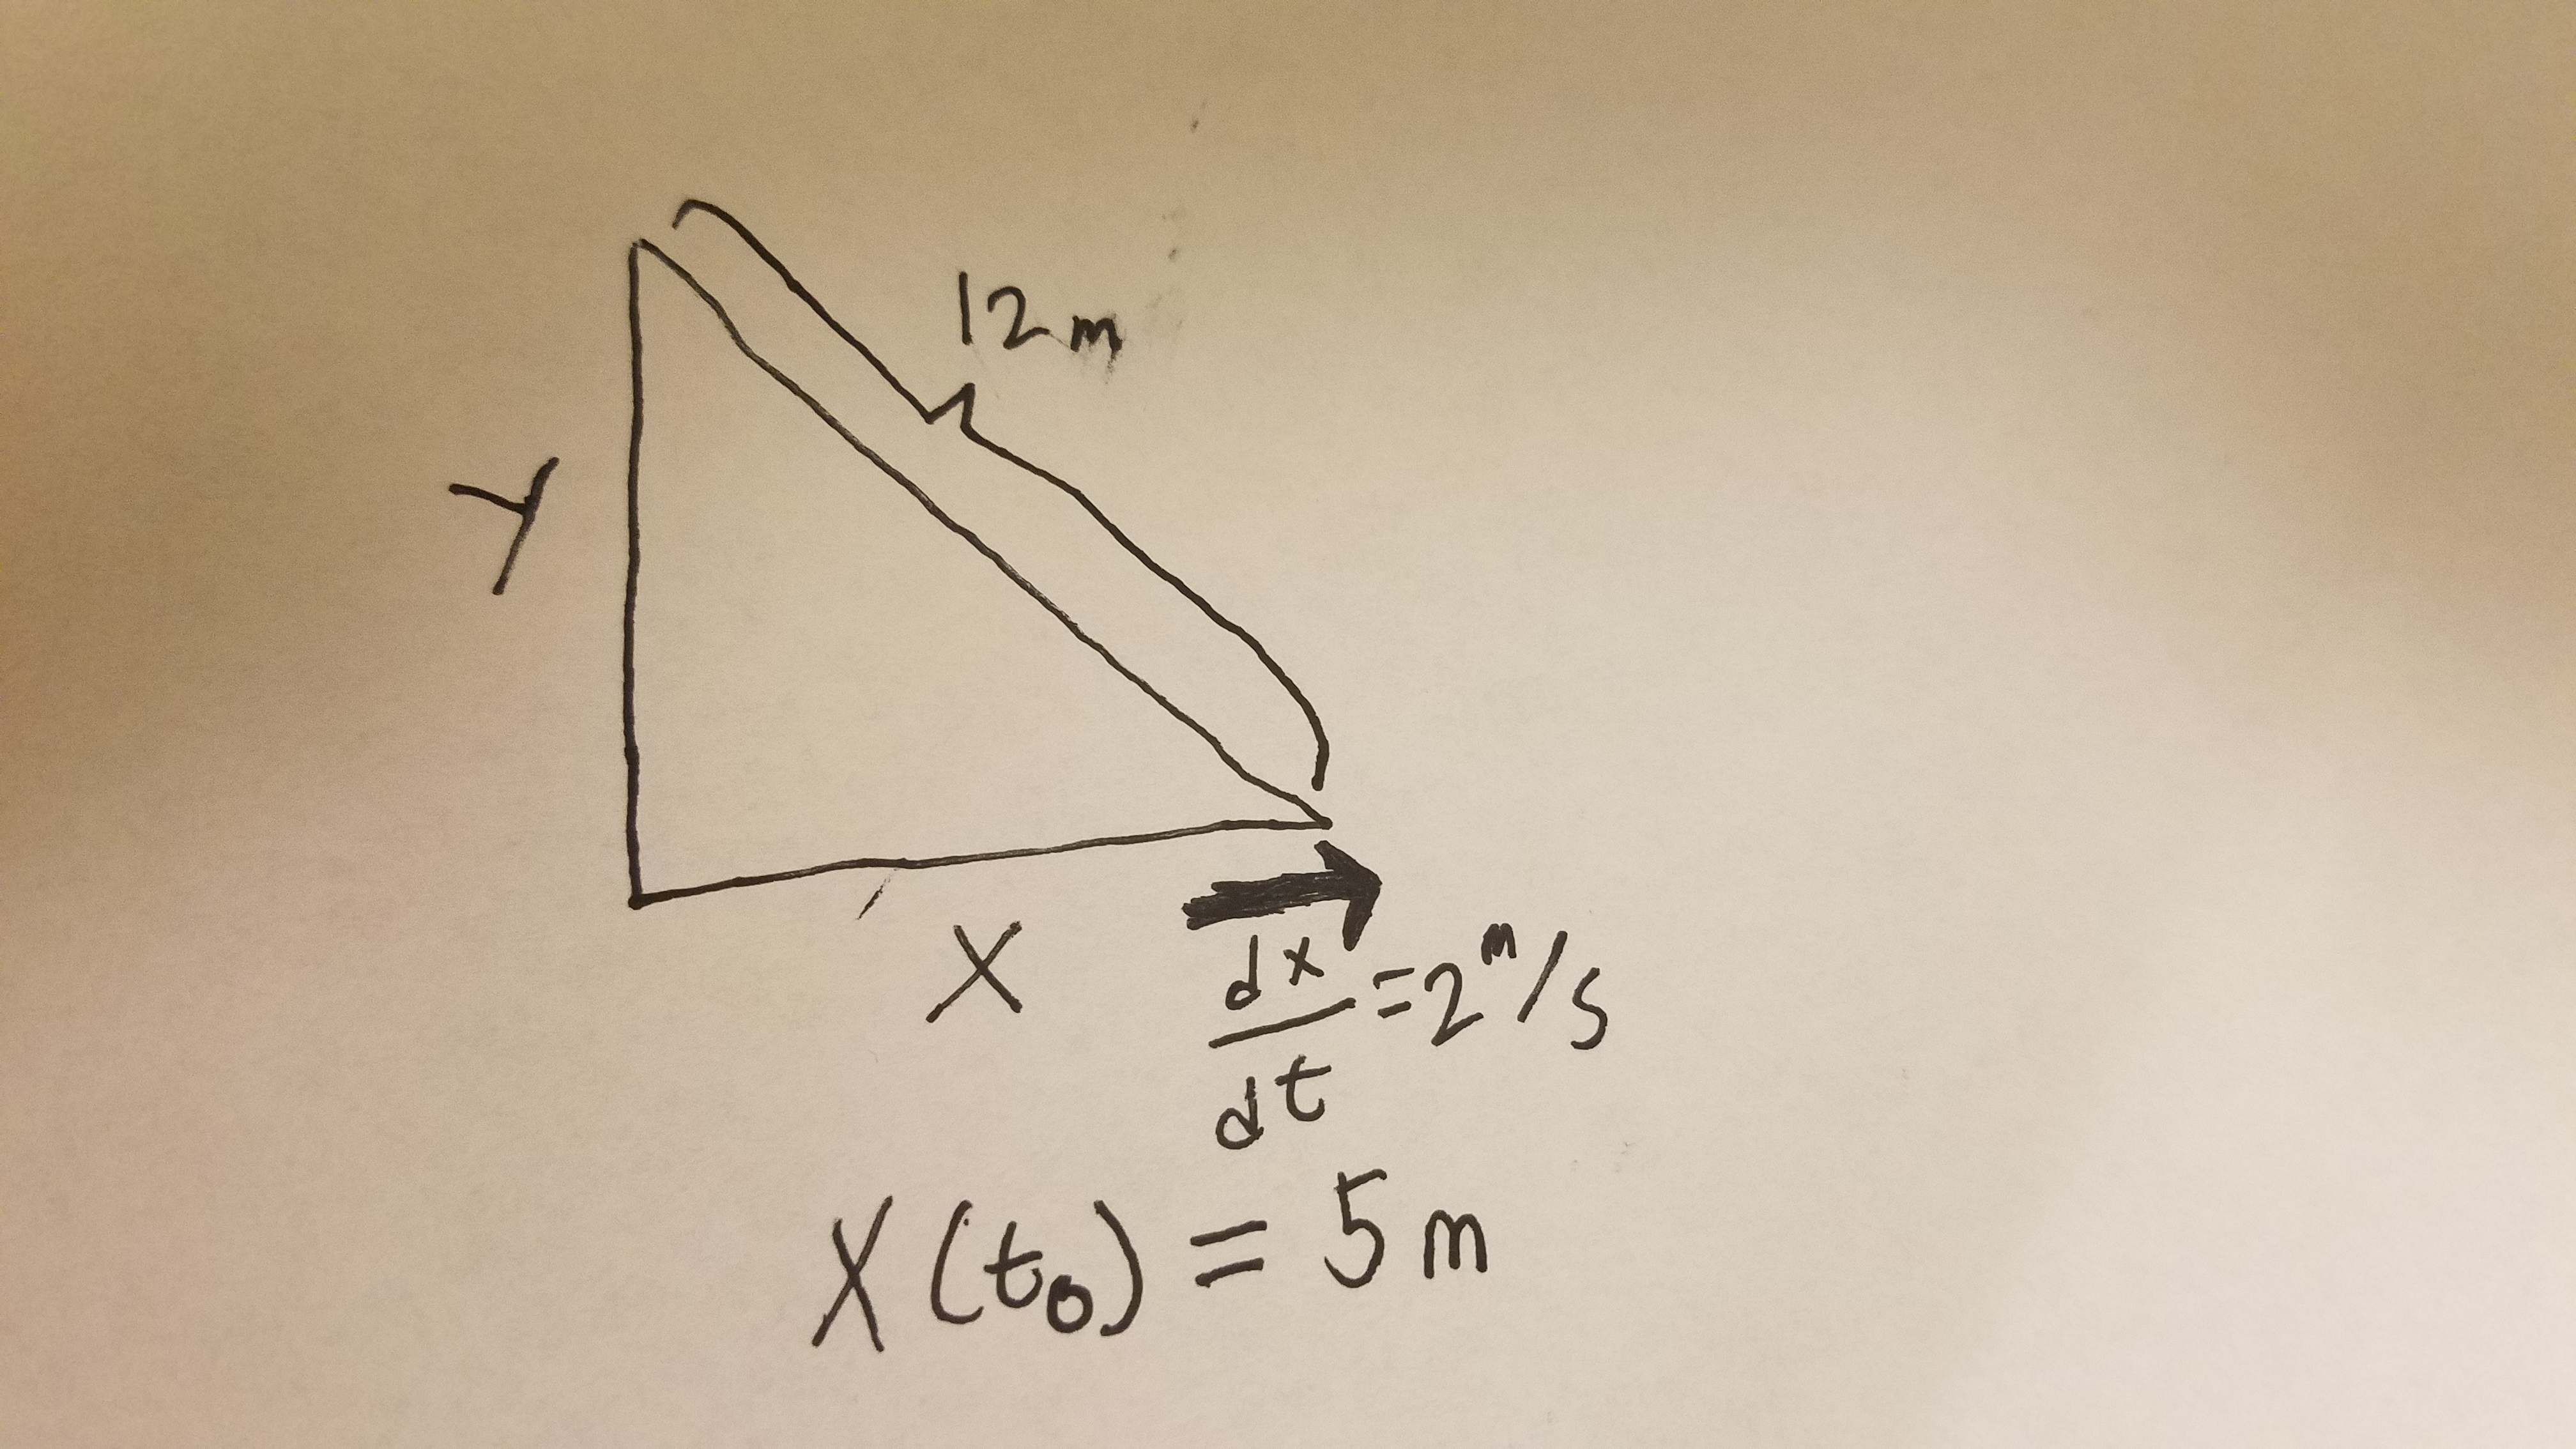 12m
Y
X
dx/dt = 2 m/s
X(t₀) = 5m